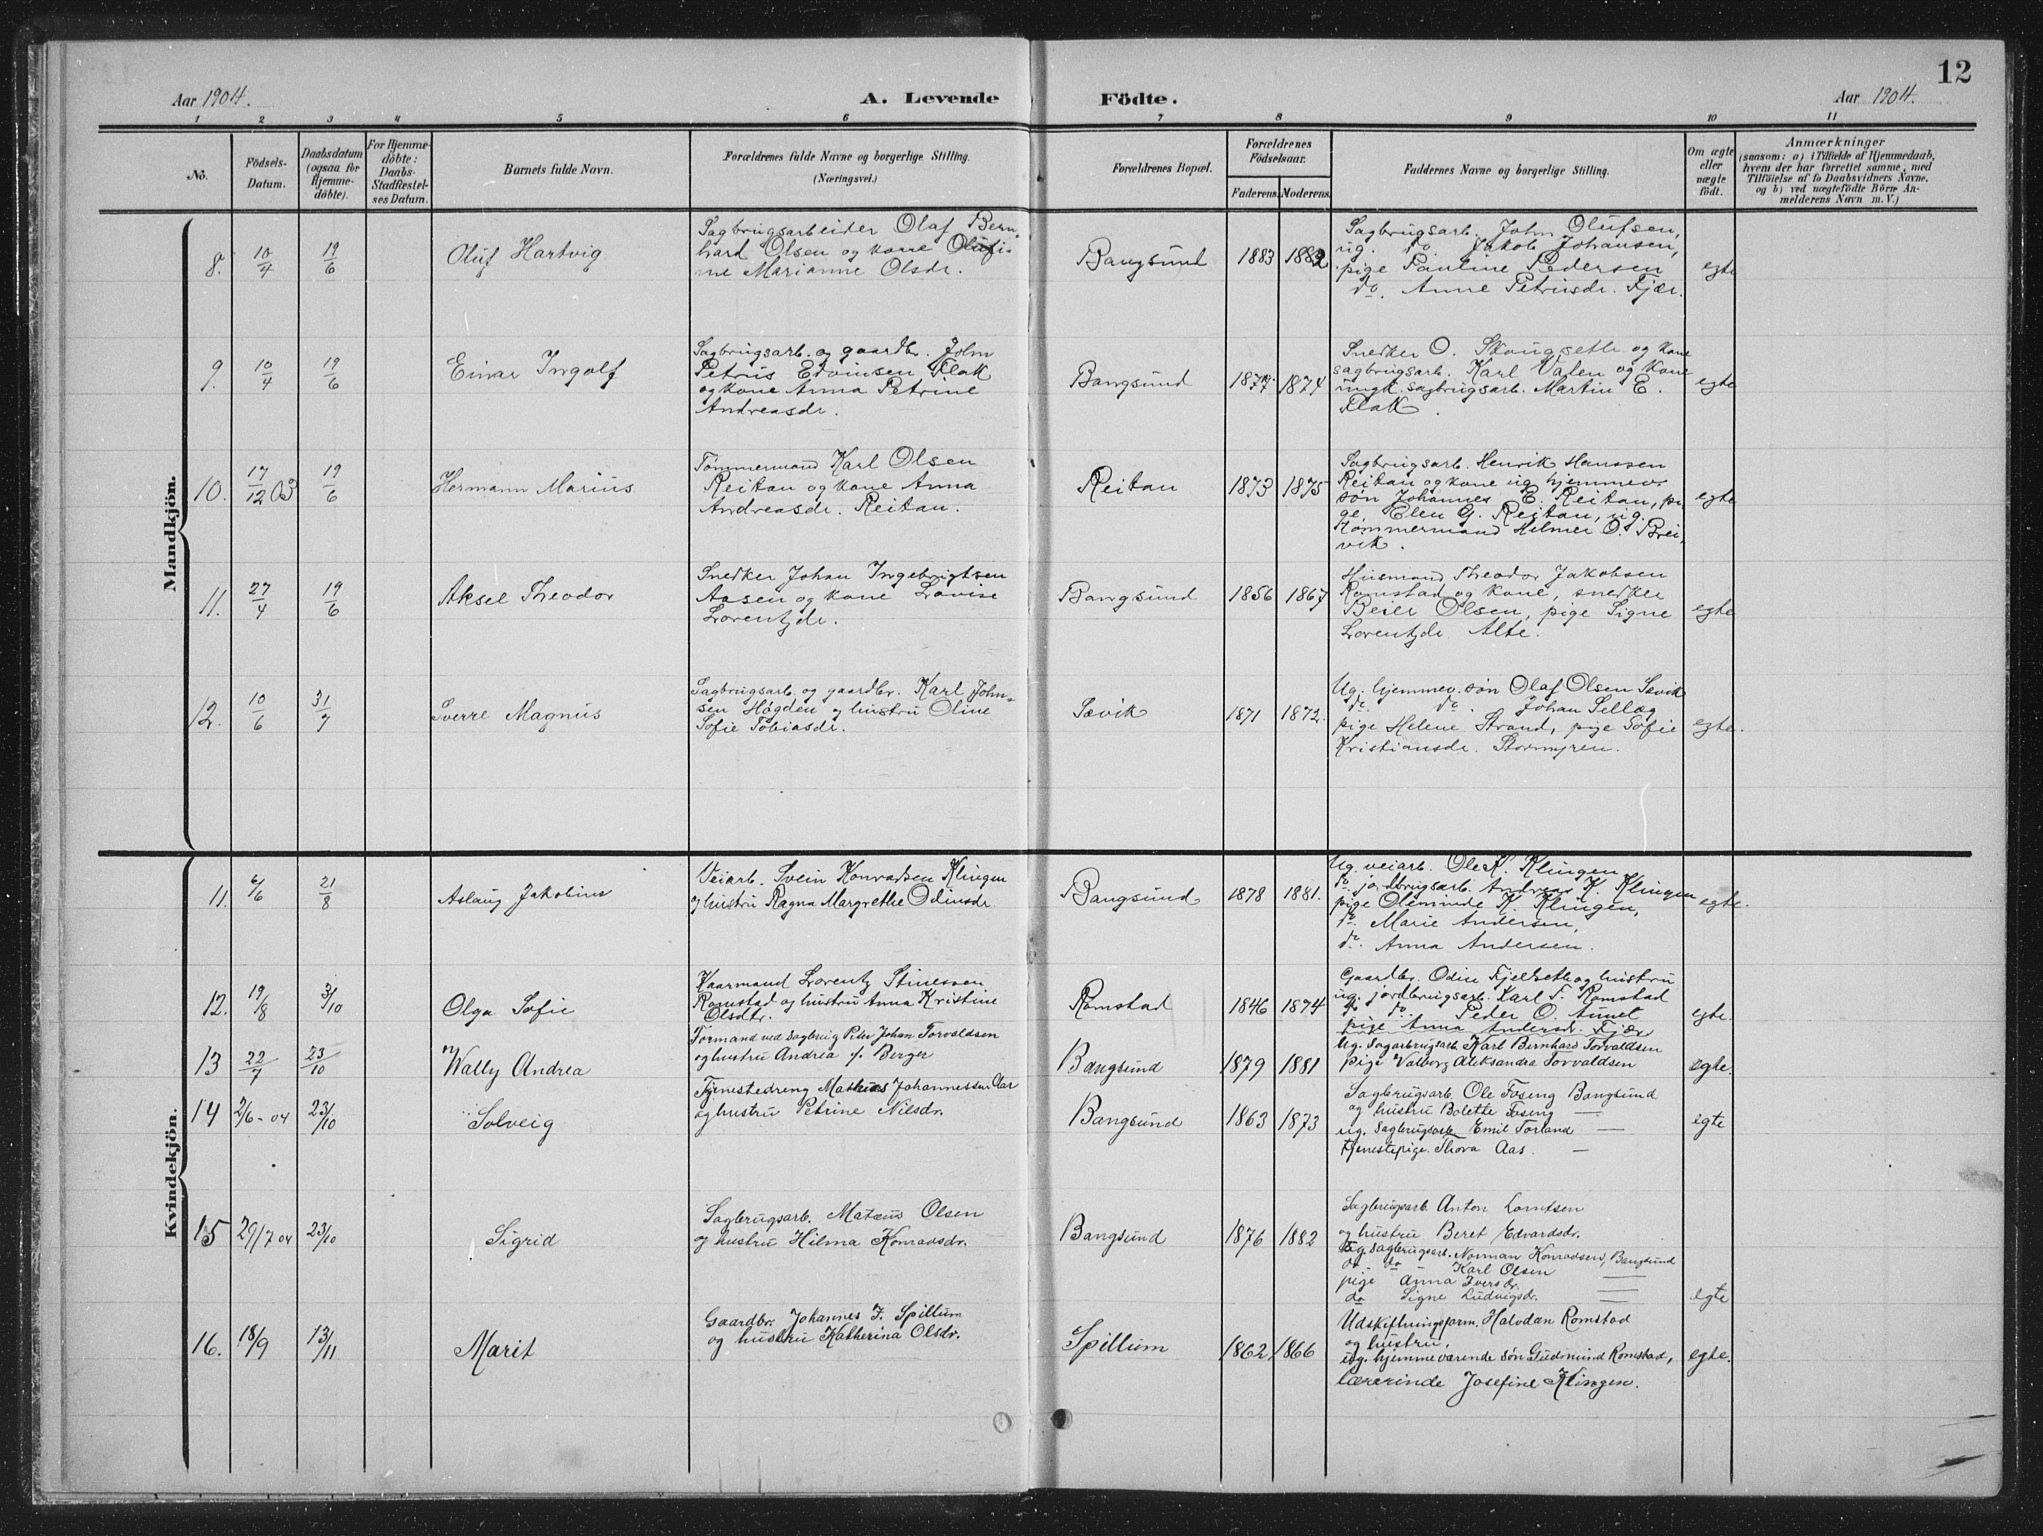 12
Aar 1904.
A. Levende Födte.
Aar 1904.
1 2 3 4 5 6 7 8 9 10 11
No.
Födsels-
Datum.
Daabsdatum
(ogsaa for
Hjemme-
döbte).
For Hjemme-
döbte:
Daabs-
Stadfæstel-
ses Datum.
Barnets fulde Navn.
Forældrenes fulde Navne og borgerlige Stilling.
(Næringsvei.)
Forældrenes Bopæl.
Forældrenes
Födselsaar.
Faderens. Moderens.
Faddernes Navne og borgerlige Stilling.
Om ægte
eller
uægte
födt.
Anmærkninger
(saasom: a) i Tilfælde af Hjemmedaab,
hvem der har forrettet samme, med
Tilföielse af to Daabsvidners Navne,
og b) ved uægtefödte Börn An-
melderens Navn m. V.)
Mandkjön.
8. 10/4 19/6 Oluf Hartvig
Sagbrugsarbeider Olaf Bern-
hard Olsen og kone Olufi-
ne Marianne Olsdr.
Bangsund 1883 1882
Sagbrugsarb. John Olufsen,
ug. do. Jakob Johansen,
pige Pauline Pedersen
do. Anne Petrusdr. Fjær.
egte
9. 10/4 19/6 Einar Ingolf
Sagbrugsarb. og gaardbr. John
Petrus Edvinsen Flak
og kone Anna Petrine
Andreasdr.
Bangsund 1874
Snedker O. Skougseth og kone
sagbrugsarb. Karl Valen og kone
ungk. sagbrugsarb. Martin E.
Flak.
egte
10. 17/12 03 19/6 Hermann Marius
Tømmermand Karl Olsen
Reitan og kone Anna
Andreasdr. Reitan.
Reitan 1873 1875
Sagbrugsarb. Henrik Hanssen
Reitan og kone ug hjemmev
søn Johannes E. Reitan, pi-
ge, Elen G. Reitan, ug.
tømmermand Helmer O. Brei-
vik.
egte
11. 27/4 19/6 Aksel Theodor
Snedker Johan Ingebrigtsen
Aasen og kone Lovise
Lorentzdr.
Bangsund 1856 1867
Husmand Theodor Jakobsen
Romstad og kone, snedker
Olsen, pige Signe
Lorentzdr. Alte.
egte
12. 10/6 31/7 Sverre Magnus
Sagbrugsarb. og gaardbr. Karl John-
sen Høgden og hustru Oline
Sofie Tobiasdr.
Sævik 1871 1872.
Ug. hjemmev. søn Olaf Olsen Sævik
do. do. Johan Sellæg
pige Helene Strand, pige Sofie
Kristiansdr. Stormyren.
egte.
Kvindekjön.
11. 6/6 21/8 Aslaug Jakobine
Veiarb. Svein Konradsen Klingen
og hustru Ragna Margrethe Odinsdr.
Bangsund 1878 1881.
Ug. veiarb. Ole K. Klingen
do. jordbrugsarb. Andreas K. Klingen
pige Oleminde K. Klingen,
do. Marie Andersen,
do. Anna Andersen.
egte.
12. 19/8 3/10 Olga Sofie
Kaarmand Lorentz Stinessen
Romstad og hustru Anna Kristine
Olsdtr.
Romstad 1846 1874
Gaardbr. Odin Fjelseth og hustru
ug. jordbrugsarb. Karl T. Romstad
do do. Peder O. Aunet
pige Anna Andersdr. Fjær
egte.
13 22/7 23/10 Wally Andrea
Formand ved Sagbrug Peter Johan Torvaldsen
og hustru Andrea f. Berger
Bangsund 1879 1881
Ug. Sagbrugsarb Karl Bernhard Torvaldsen
pige Valborg Aleksandra Torvaldsen
egte.
14 2/6-04 23/10 Solveig
Tjenestedreng Mathias Johannessen Aar
og hustru Petrine Nilsdr.
Bangsund 1863 1873
Sagbrugsarb. Ole Foseng Bangsund
og hustru Bolette Foseng —
ug. Sagbrugsarb Emil Forland —
tjenestepige. Thora Aas. —
egte
15 29/7 04 23/10 Sigrid
Sagbrugsarb. Matæus Olsen
og hustru Hilma Konradsdr.
Bangsund 1876 1882
Sagbrugsarb Anton Lorntsen
og hustru Beret Edvardsdr.
Ug. sagbrugsarb. Norman Konradsen, Bangsund
do do — Karl Olsen
pige Anna Iversdr. —
do Signe Ludvigsdr. —
egte
16. 18/9 13/11 Marit
Gaardbr. Johannes J. Spillum
og hustru Katherina Olsdr.
Spillum 1862 1866
Udskiftningsform. Halvdan Romstad
og hustru,
ug. hjemmeværende søn Gudmund Romstad,
Lærerinde Josefine Klingen.
egte.